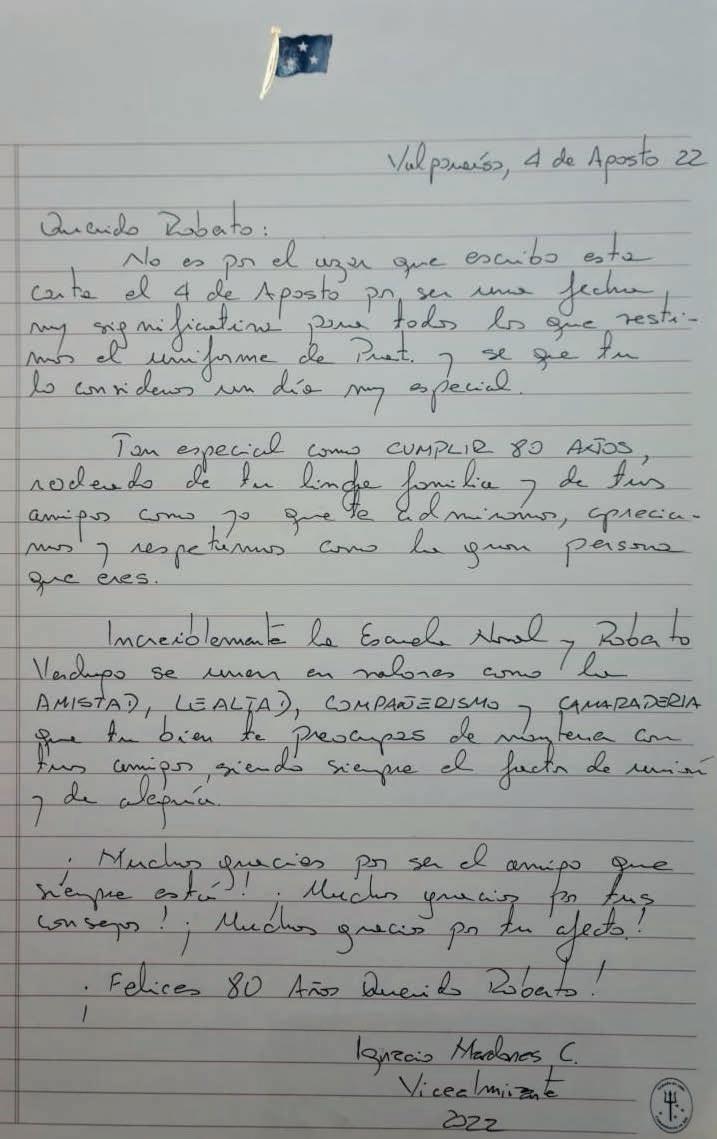 Valparaíso, 4 de Agosto 22
Querido Roberto:
No es por el azar que escribo esta
carta el 4 de Agosto por ser una fecha
muy significativa para todos los que vesti-
mos el uniforme de Prat. y se que tu
lo consideras un día muy especial.
Tan especial como CUMPLIR 80 AÑOS,
rodeado de tu linda familia y de tus
amigos como yo que te admiramos, aprecia-
mos y respetamos como la gran persona
que eres.
Increiblemente la Escuela Naval y Roberto
Verdugo se unen en valores como la
AMISTAD, LEALTAD, COMPAÑERISMO y CAMARADERIA
que tu bien te preocupas de mantener con
tus amigos, siendo siempre el factor de unión
y de alegría.
¡Muchas gracias por ser el amigo que
siempre está! ¡Muchas gracias por tus
consejos! ¡Muchas gracias por tu afecto!
¡Felices 80 Años Querido Roberto!
Ignacio Mardones C.
Vicealmirante
2022